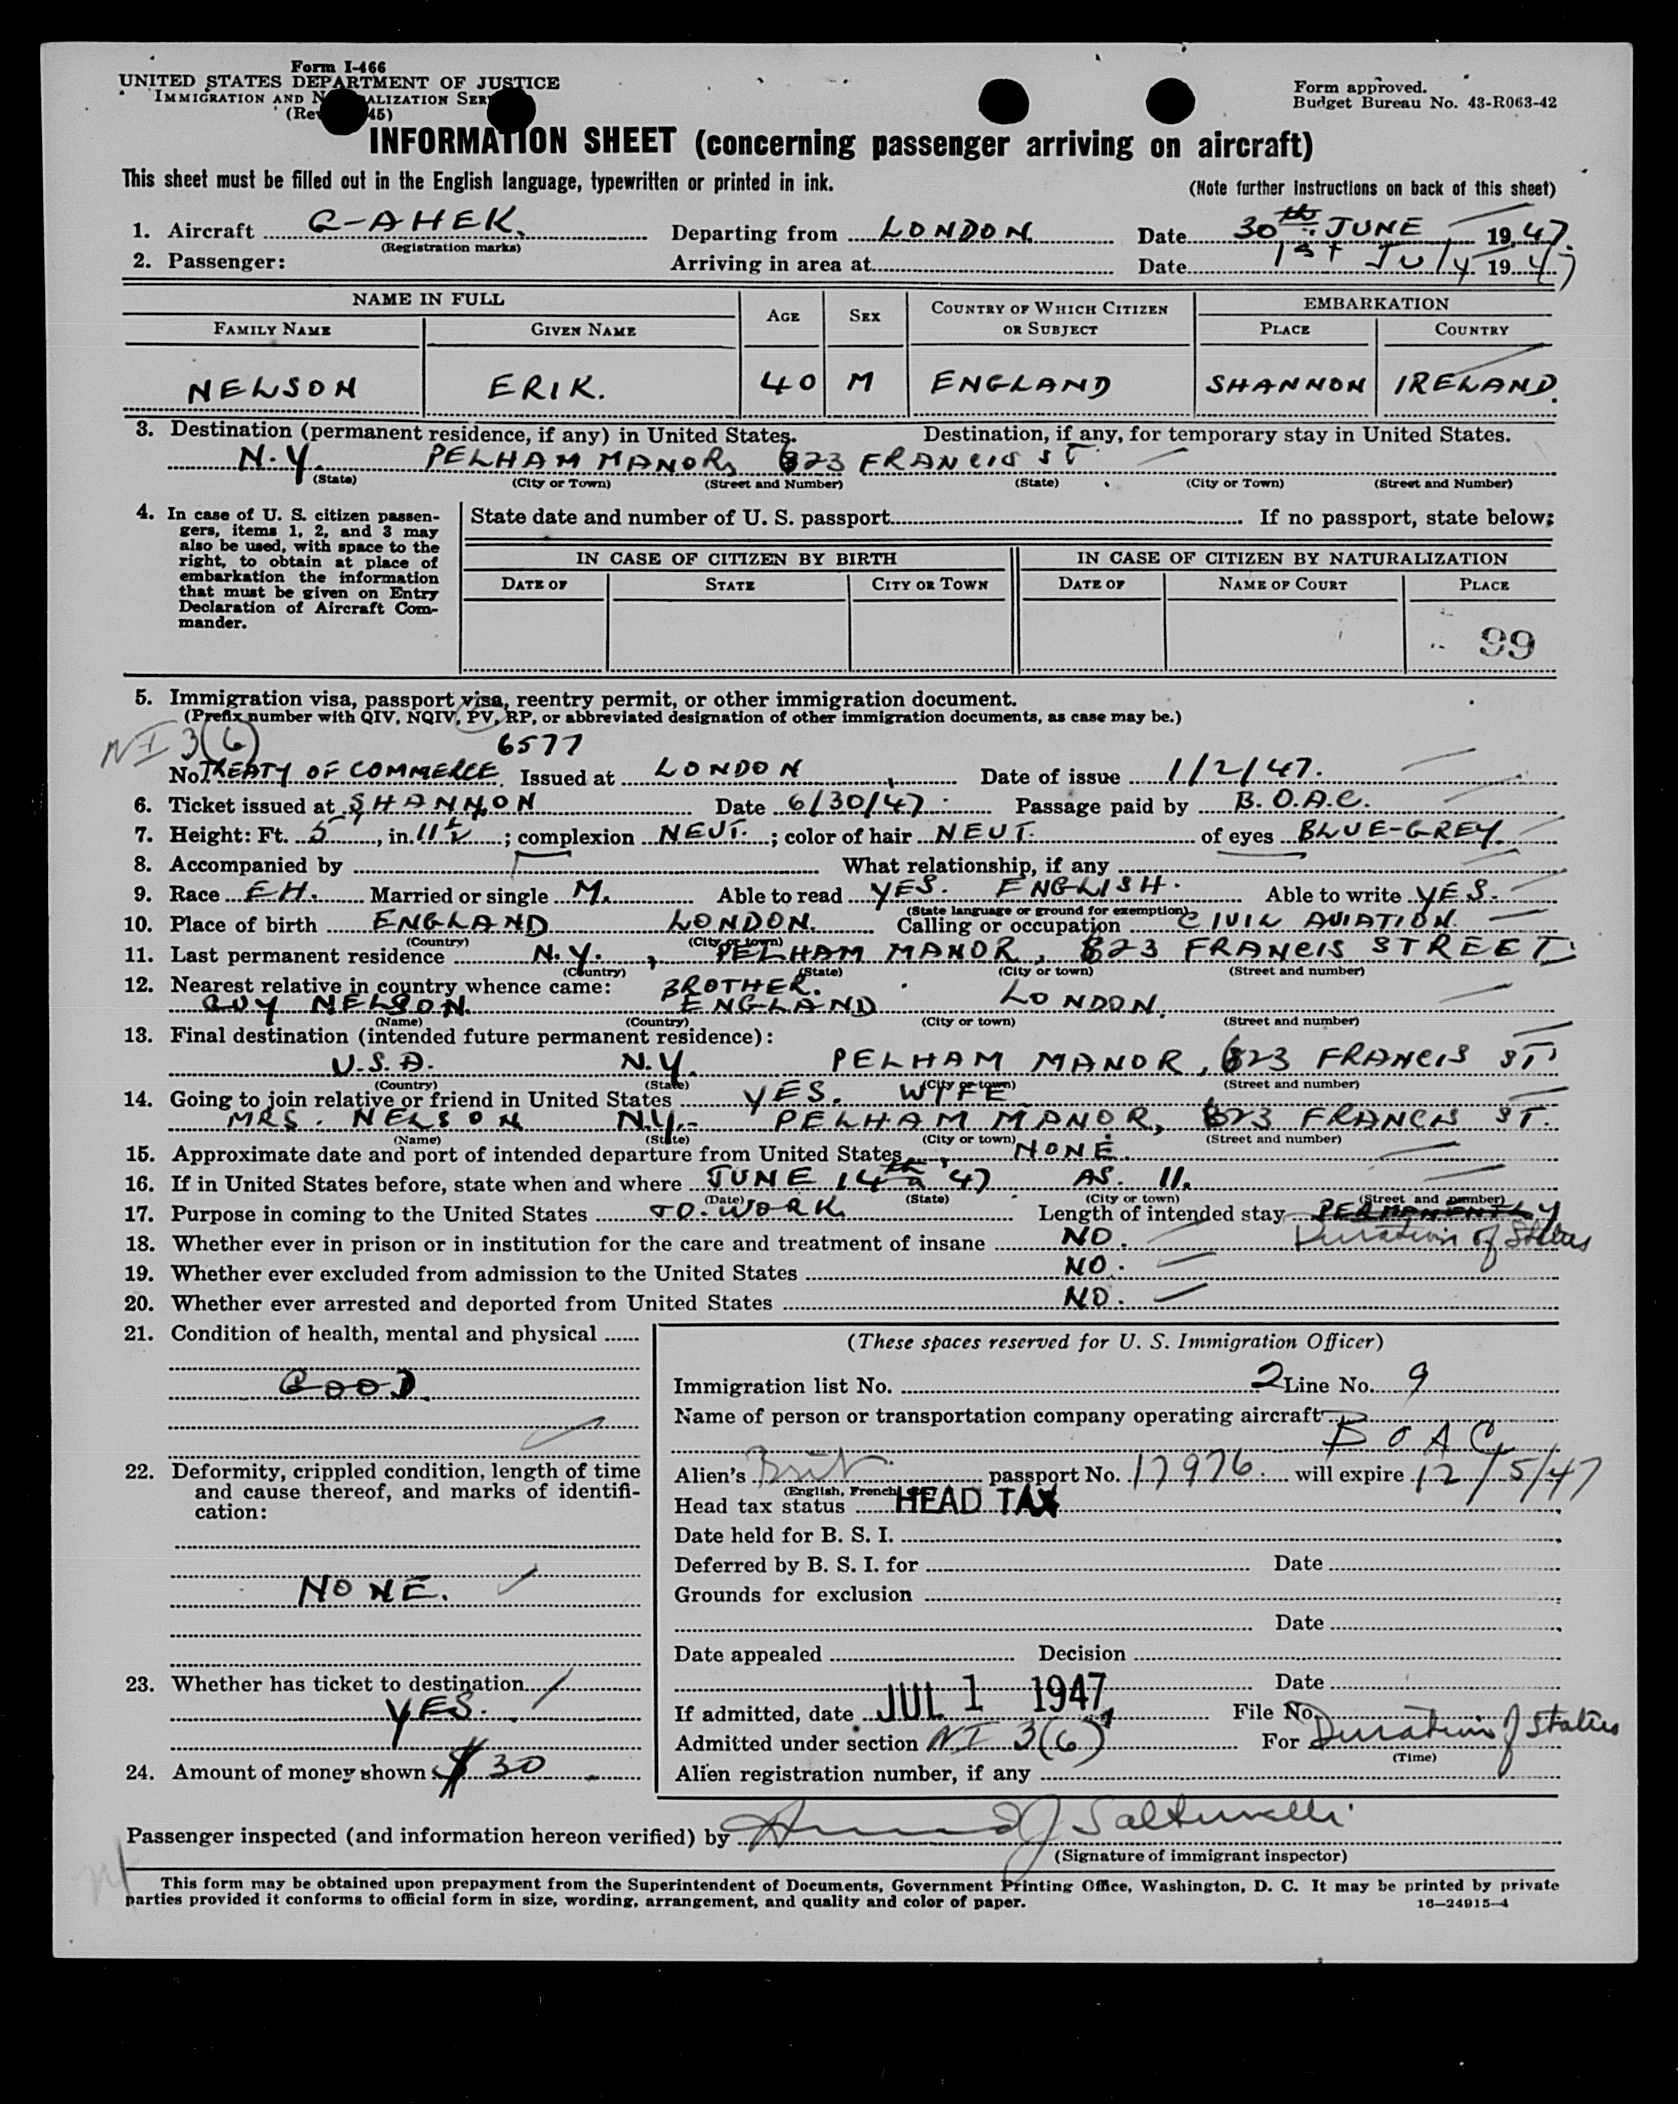 Form I-466
UNITED STATES DEPARTMENT OF JUSTICE
IMMIGRATION AND N ALIZATION SER
(Re 45)
Form approved.
Budget Bureau No. 43-R063-42
INFORMATION SHEET (concerning passenger arriving on aircraft)
This sheet must be filled out in the English language, typewritten or printed in ink.
(Note further instructions on back of this sheet)
1. Aircraft G-AHEK. Departing from LONDON Date 30th JUNE 1947.
(Registration marks)
2. Passenger: Arriving in area at Date 1st July 1947
NAME IN FULL AGE SEX COUNTRY OF WHICH CITIZEN OR SUBJECT EMBARKATION
FAMILY NAME GIVEN NAME PLACE COUNTRY
NELSON ERIK. 40 M ENGLAND SHANNON IRELAND.
3. Destination (permanent residence, if any) in United States. Destination, if any, for temporary stay in United States.
N.Y. PELHAM MANOR, 623 FRANCIS ST
(State) (City or Town) (Street and Number) (State) (City or Town) (Street and Number)
4. In case of U. S. citizen passen-
gers, items 1, 2, and 3 may
also be used, with space to the
right, to obtain at place of
embarkation the information
that must be given on Entry
Declaration of Aircraft Com-
mander.
State date and number of U. S. passport If no passport, state below:
IN CASE OF CITIZEN BY BIRTH IN CASE OF CITIZEN BY NATURALIZATION
DATE OF STATE CITY OR TOWN DATE OF NAME OF COURT PLACE
99
5. Immigration visa, passport visa, reentry permit, or other immigration document.
(Prefix number with QIV, NQIV, PV, RP, or abbreviated designation of other immigration documents, as case may be.)
NI 3(6) 6577
No. TREATY OF COMMERCE Issued at LONDON Date of issue 1/2/47.
6. Ticket issued at SHANNON Date 6/30/47 Passage paid by B.O.A.C.
7. Height: Ft. 5, in. 11½; complexion NEUT.; color of hair NEUT. of eyes BLUE-GREY.
8. Accompanied by What relationship, if any
9. Race EH. Married or single M. Able to read YES. ENGLISH. Able to write YES.
(State language or ground for exemption)
10. Place of birth ENGLAND LONDON. Calling or occupation CIVIL AVIATION.
(Country) (City or town)
11. Last permanent residence N.Y., PELHAM MANOR, 623 FRANCIS STREET.
(Country) (State) (City or town) (Street and number)
12. Nearest relative in country whence came: BROTHER.
GUY NELSON. ENGLAND LONDON.
(Name) (Country) (City or town) (Street and number)
13. Final destination (intended future permanent residence):
U.S.A. N.Y. PELHAM MANOR, 623 FRANCIS ST
(Country) (State) (City or town) (Street and number)
14. Going to join relative or friend in United States YES. WIFE
MRS. NELSON N.Y. PELHAM MANOR, 623 FRANCIS ST.
(Name) (State) (City or town) (Street and number)
15. Approximate date and port of intended departure from United States NONE.
16. If in United States before, state when and where JUNE 14th 47 AS. 11.
(Date) (State) (City or town) (Street and number)
17. Purpose in coming to the United States TO WORK Length of intended stay PERMANENTLY
18. Whether ever in prison or in institution for the care and treatment of insane NO. Duration of Status
19. Whether ever excluded from admission to the United States NO.
20. Whether ever arrested and deported from United States NO.
21. Condition of health, mental and physical
GOOD.
22. Deformity, crippled condition, length of time
and cause thereof, and marks of identifi-
cation:
NONE.
23. Whether has ticket to destination
YES.
24. Amount of money shown $30
(These spaces reserved for U. S. Immigration Officer)
Immigration list No. 2 Line No. 9
Name of person or transportation company operating aircraft
BOAC
Alien's Brit passport No. 17976. will expire 12/5/47
(English, French
Head tax status HEAD TAX
Date held for B. S. I.
Deferred by B. S. I. for Date
Grounds for exclusion
Date
Date appealed Decision
Date
If admitted, date JUL 1 1947 File No.
Admitted under section NI 3(6) For Duration of Status
(Time)
Alien registration number, if any
Passenger inspected (and information hereon verified) by
(Signature of immigrant inspector)
This form may be obtained upon prepayment from the Superintendent of Documents, Government Printing Office, Washington, D. C. It may be printed by private
parties provided it conforms to official form in size, wording, arrangement, and quality and color of paper.
16—24915-4